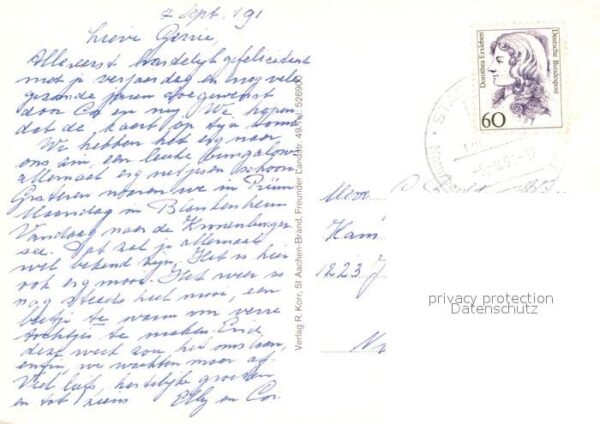 7 Sept. '91
Lieve Gerrie,
Allereerst hartelijk gefeliciteerd
met je verjaardag en nog vele
gezonde jaren toegewenst
door Cor en mij. We hopen
dat de kaart op tijd komt.
We hebben het erg naar
ons zin, een leuke bungalow
allemaal erg netjes en schoon.
Gisteren waren we in Prüm
Maandag in Blankenheim
Vandaag naar de Kronenburger
see. Dat zal je allemaal
wel bekend zijn. Het is hier
ook erg mooi. Het weer is
nog steeds heel mooi, een
beetje te warm om verre
tochtjes te maken. Eind
deze week zou het omslaan,
enfin, we wachten maar af.
Veel liefs, hartelijke groeten
en tot ziens Elly en Cor.
Verlag R. Korr, 51 Aachen-Brand, Freunder Landstr. 49, Tel. 526900
Dorothea Erxleben
Deutsche Bundespost
60
Mevr
1223
privacy protection
Datenschutz